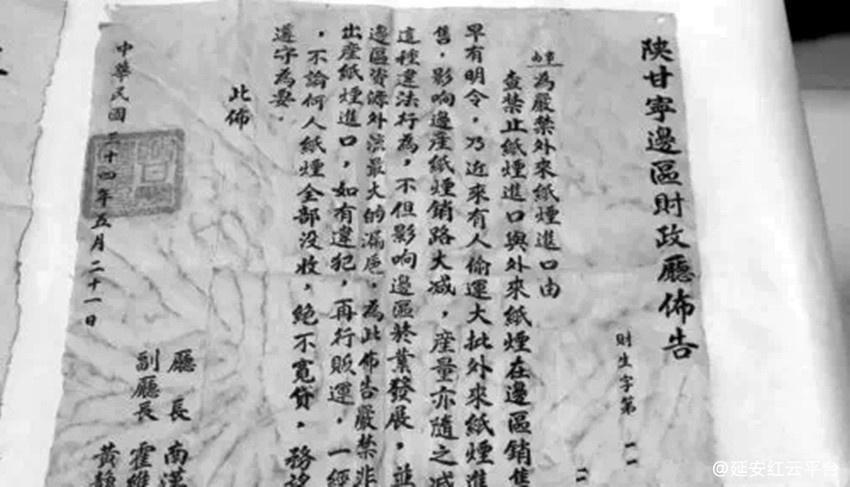 陝甘寧邊區財政廳佈告
財生字第一一
事由
為嚴禁外來紙煙進口由
查禁止紙煙進口與外來紙煙在邊區銷售
早有明令，乃近來有人偷運大批外來紙煙進
售，影响邊產紙煙銷路大减，產量亦隨之减
這種違法行為，不但影响邊區菸業發展，並
邊區資源外流最大的漏巵，為此佈告嚴禁非
出產紙煙進口，如有違犯，再行販運，一經
，不論何人紙煙全部没收，絶不寬貸，務望
遵守為要。
此佈
廳長 南漢
副廳長 霍維
黃靜
中華民國三十四年五月二十一日
@延安红云平台